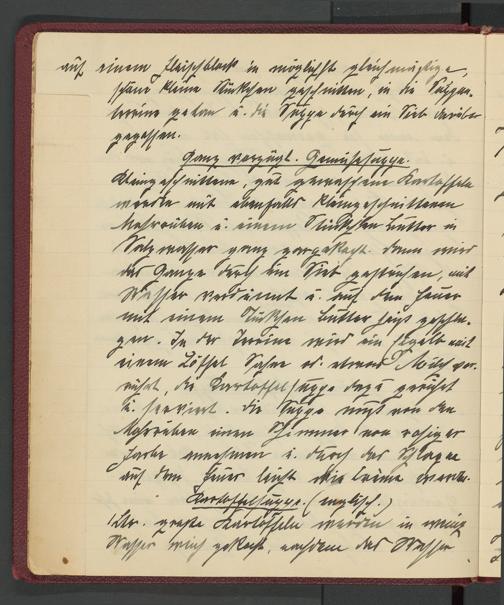 auf einem Fleischblock in möglichst gleichmäßige,
kleine Stückchen geschnitten, in die Suppen-
terrine getan u. die Suppe durch ein Sieb darüber
gegossen.
Ganz vorzügl. Gemüsesuppe.
Kleingeschnittene, gut gewaschene Kartoffeln
werden mit ebenfalls kleingeschnittenen
Mohrrüben u. einem Stückchen Butter in
Salzwasser ganz gekocht. dann wird
das Ganze durch ein Sieb gestrichen, mit
Wasser verdünnt u. auf dem Feuer
mit einem Stückchen Butter schla-
gen. In der Terrine wird ein Eigelb mit
einem Löffel Sahne od. etwas Milch ver-
rührt, die Kartoffelsuppe dazu gerührt
u. serviert. die Suppe muß von den
Mohrrüben einen Schimmer von rosiger
Farbe annehmen u. durch das Schlagen
auf dem Feuer leicht wie Crème werden.
Kartoffelsuppe. (englisch.)
1 Ltr. große Kartoffeln werden in wenig
Wasser weich gekocht, nachdem das Wasser